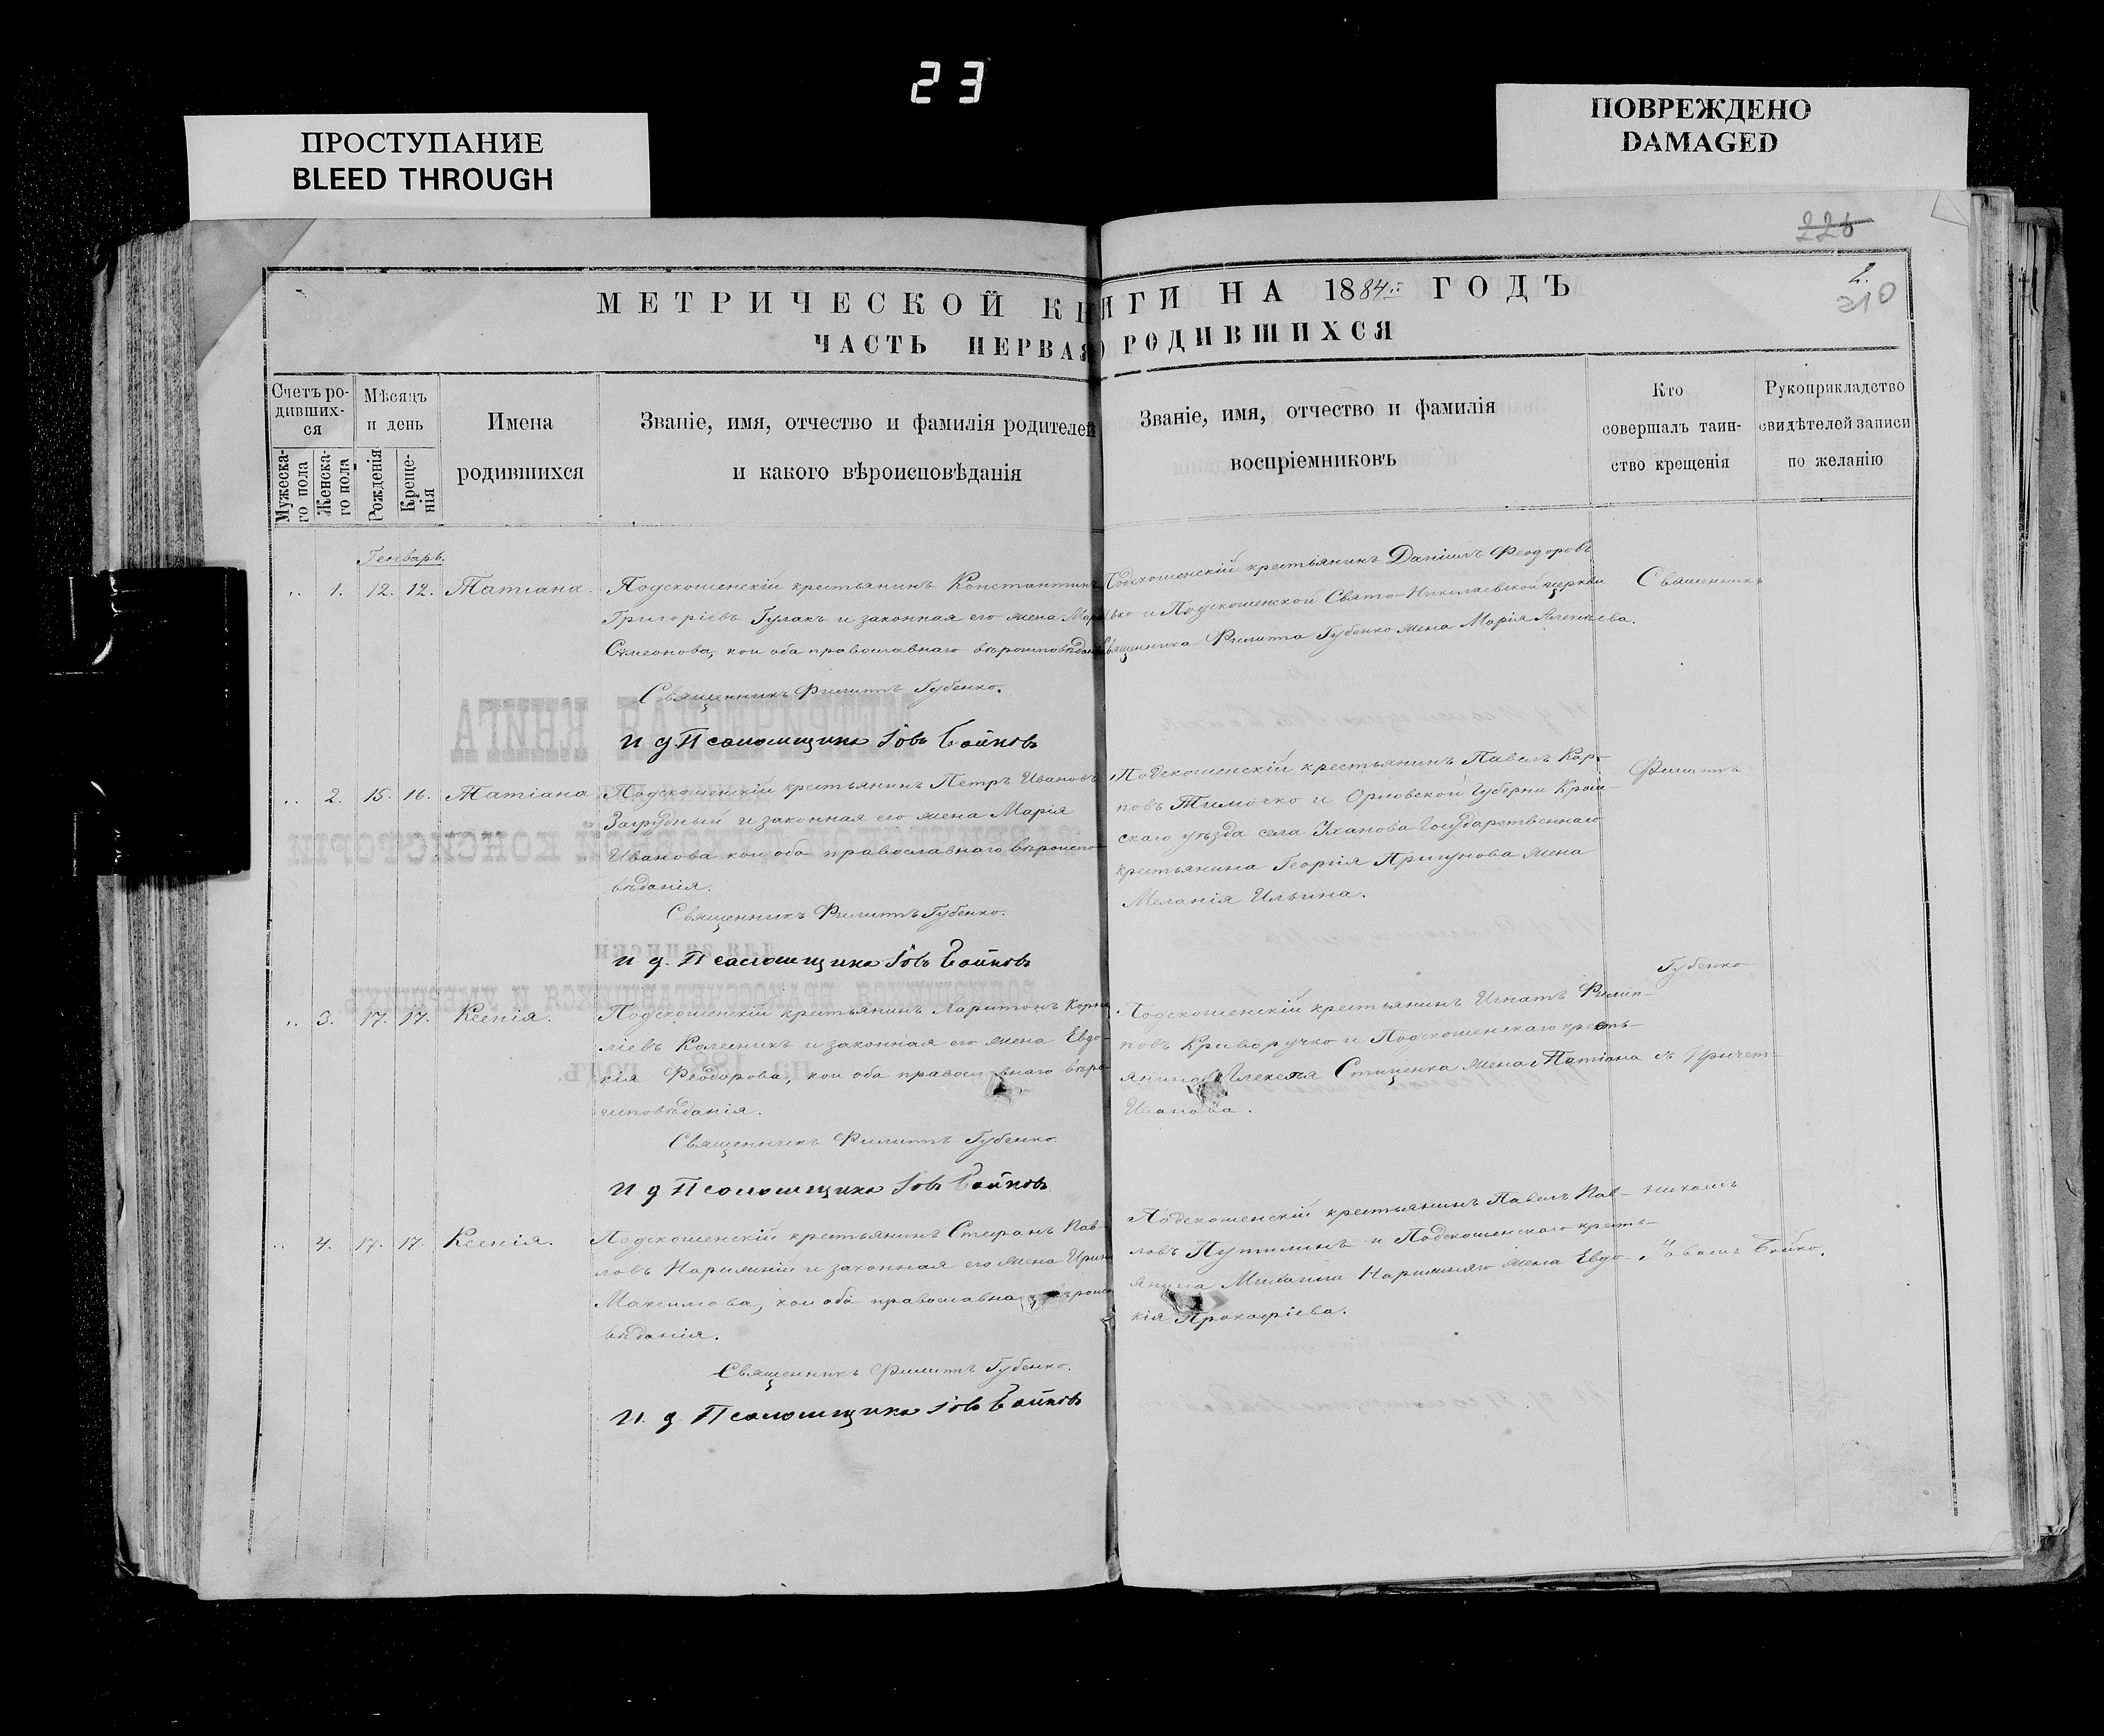 23
ПРОСТУПАНИЕ
BLEED THROUGH
ПОВРЕЖДЕНО
DAMAGED
226
2.
210
МЕТРИЧЕСКОЙ КНИГИ НА 1884 ГОДЪ
ЧАСТЬ ПЕРВАЯ О РОДИВШИХСЯ
Счетъ ро-
дивших-
ся
Мужеска-
го пола
Женска-
го пола
Мѣсяцъ
и день
Рожденія
Креще-
нія
Имена
родившихся
Званіе, имя, отчество и фамилія родителей
и какого вѣроисповѣданія
Званіе, имя, отчество и фамилія
воспріемниковъ
Кто
совершалъ таин-
ство крещенія
Рукоприкладство
свидѣтелей записи
по желанію
Генварь.
„ 1. 12. 12. Татіана.
Подокошенскій крестьянинъ Константинъ
Григоріевъ Гулакъ и законная его жена
Симеонова, кои оба православнаго
Священникъ Филиппъ Губенко.
И д Псаломщика Іовъ Бойковъ
Подокошенскій крестьянинъ Даніилъ Феодоровъ
и Подокошенской Свято-Николаевской церкви
Священника Филиппа Губенко жена Марія Алексѣева.
„ 2. 15. 16. Татіана
Подокошенскій крестьянинъ Петръ Ивановъ
Загрудный и законная его жена Марія
Иванова кои оба православнаго вѣроиспо-
вѣданія.
Священникъ Филиппъ Губенко.
И д. Псаломщика Іовъ Бойковъ
Подокошенскій крестьянинъ Павелъ Кар-
повъ Тимочко и Орловской Губерни Кром-
скаго уѣзда села Государственнаго
крестьянина Георгія Пригунова жена
Меланія Ильина.
„ 3. 17. 17. Ксенія.
Подокошенскій крестьянинъ Харитонъ Корни
ліевъ Колесникъ и законная его жена Евдо-
кія Феодорова, кои оба вѣро-
исповѣданія.
Священникъ Филиппъ Губенко.
И д Псаломщика Іовъ Бойковъ
Подокошенскій крестьянинъ Игнатъ Филип-
повъ Криворучко и Подокошенскаго кресть-
янина Алексѣя Стиценка жена Татіана
Иванова.
„ 4. 17. 17. Ксенія.
Подокошенскій крестьянинъ Стефанъ Пав-
ловъ Нарижній и законная его жена Ирина
Максимова, кои оба
вѣданія.
Священникъ Филиппъ Губенко.
И. д Псаломщика Іовъ Бойковъ
Подокошенскій крестьянинъ Павелъ Пав-
ловъ Путилинъ и Подокошенскаго кресть-
янина Михаила Нарижняго жена Евдо-
кія Прокофіева.
Священникъ
Филиппъ
Губенко
съ Причет-
никомъ
Іовомъ Бойко.